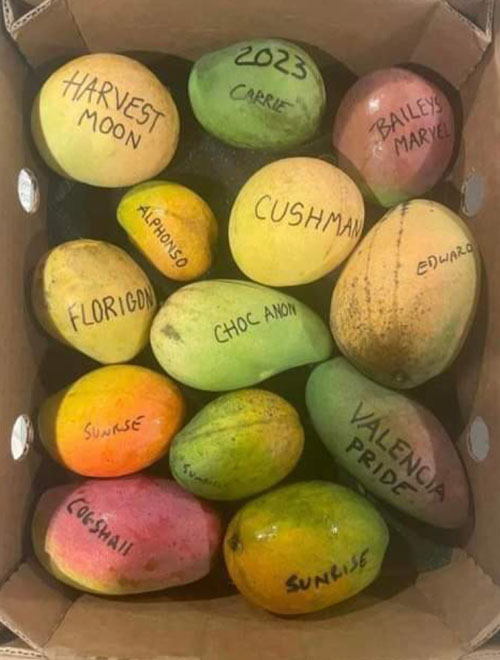 HARVEST
MOON
2023
CARRIE
BAILEYS
MARVEL
ALPHONSO
CUSHMAN
EDWARD
FLORIGON
CHOC ANON
SUNRSE
VALENCIA
PRIDE
COGSHAll
SUNRISE